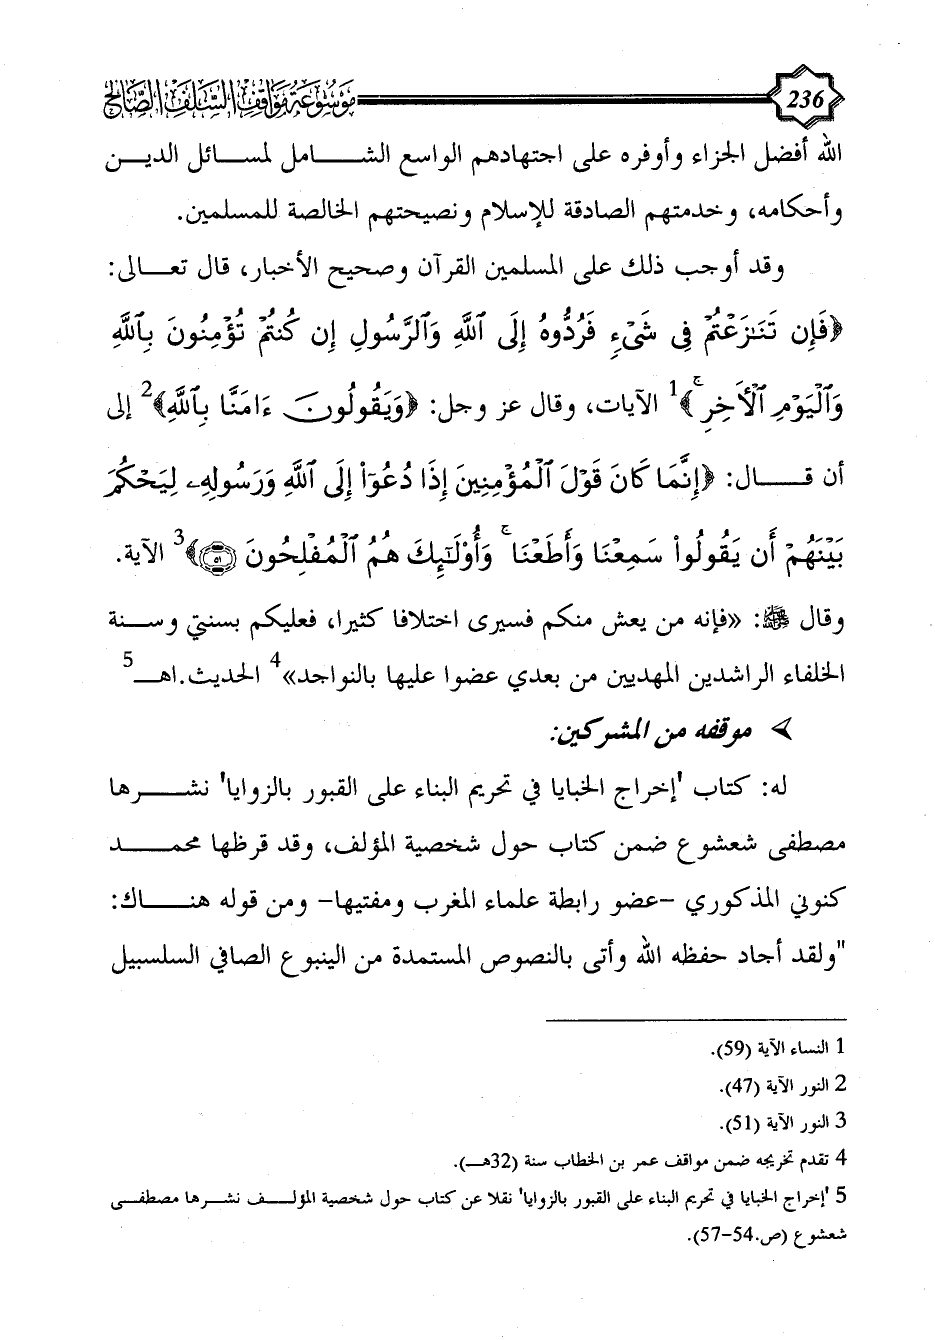 236 موسوعة مواقف السلف الصالح
الله أفضل الجزاء وأوفره على اجتهادهم الواسع الشامل لمسائل الدين
وأحكامه، وخدمتهم الصادقة للإسلام ونصيحتهم الخالصة للمسلمين.
وقد أوجب ذلك على المسلمين القرآن وصحيح الأخبار، قال تعالى:
﴿فَإِن تَنَٰزَعْتُمْ فِى شَىْءٍ فَرُدُّوهُ إِلَى ٱللَّهِ وَٱلرَّسُولِ إِن كُنتُمْ تُؤْمِنُونَ بِٱللَّهِ
وَٱلْيَوْمِ ٱلْأَخِرِ ۚ﴾1 الآيات، وقال عز وجل: ﴿وَيَقُولُونَ ءَامَنَّا بِٱللَّهِ﴾2 إلى
أن قال: ﴿إِنَّمَا كَانَ قَوْلَ ٱلْمُؤْمِنِينَ إِذَا دُعُوٓا۟ إِلَى ٱللَّهِ وَرَسُولِهِۦ لِيَحْكُمَ
بَيْنَهُمْ أَن يَقُولُوا۟ سَمِعْنَا وَأَطَعْنَا ۚ وَأُو۟لَٰٓئِكَ هُمُ ٱلْمُفْلِحُونَ ٥١﴾3 الآية.
وقال ﷺ: «فإنه من يعش منكم فسيرى اختلافا كثيرا، فعليكم بسنتي وسنة
الخلفاء الراشدين المهديين من بعدي عضوا عليها بالنواجد»4 الحديث.اهـ5
➤ موقفه من المشركين:
له: كتاب 'إخراج الخبايا في تحريم البناء على القبور بالزوايا' نشرها
مصطفى شعشوع ضمن كتاب حول شخصية المؤلف، وقد قرظها محمد
كنوني المذكوري -عضو رابطة علماء المغرب ومفتيها- ومن قوله هناك:
"ولقد أجاد حفظه الله وأتى بالنصوص المستمدة من الينبوع الصافي السلسبيل
1 النساء الآية (59).
2 النور الآية (47).
3 النور الآية (51).
4 تقدم تخريجه ضمن مواقف عمر بن الخطاب سنة (32هـ).
5 'إخراج الخبايا في تحريم البناء على القبور بالزوايا' نقلا عن كتاب حول شخصية المؤلف نشرها مصطفى
شعشوع (ص.54-57).